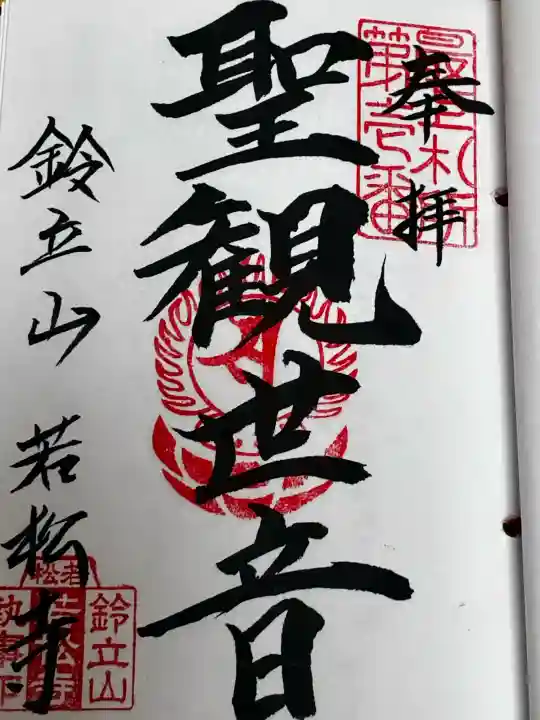 奉拝
最上札所
第壱番
聖観世音
鈴立山 若松寺
鈴立山
若松
若松寺